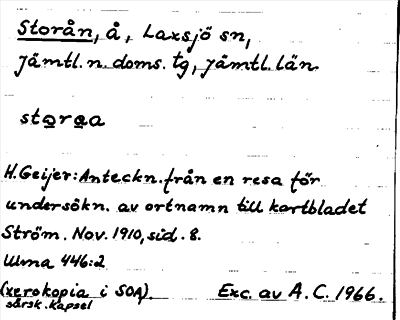 Storån, å, Laxsjö sn,
Jämtl. n. doms. tg, Jämtl. län
storaa
H. Geijer: Anteckn. från en resa för
undersökn. av ortnamn till kartbladet
Ström. Nov. 1910, sid. 8.
Ulma 446:2
(xerokopia i SOA). Exc. av A. C. 1966.
särsk. kapsel